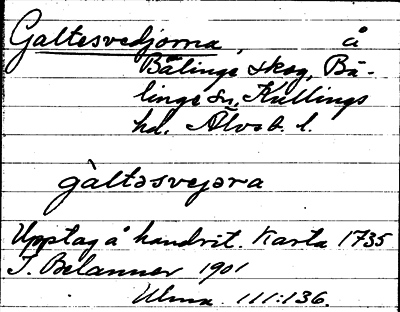 Galtesvedjorna, å
Bälinge skog, Bä-
linge sn, Kullings
hd. Älvsb. l.
gàltəsvejəra
Upptag å handrit. Karta 1735
T. Belanner 1901
Ulma 111:136.